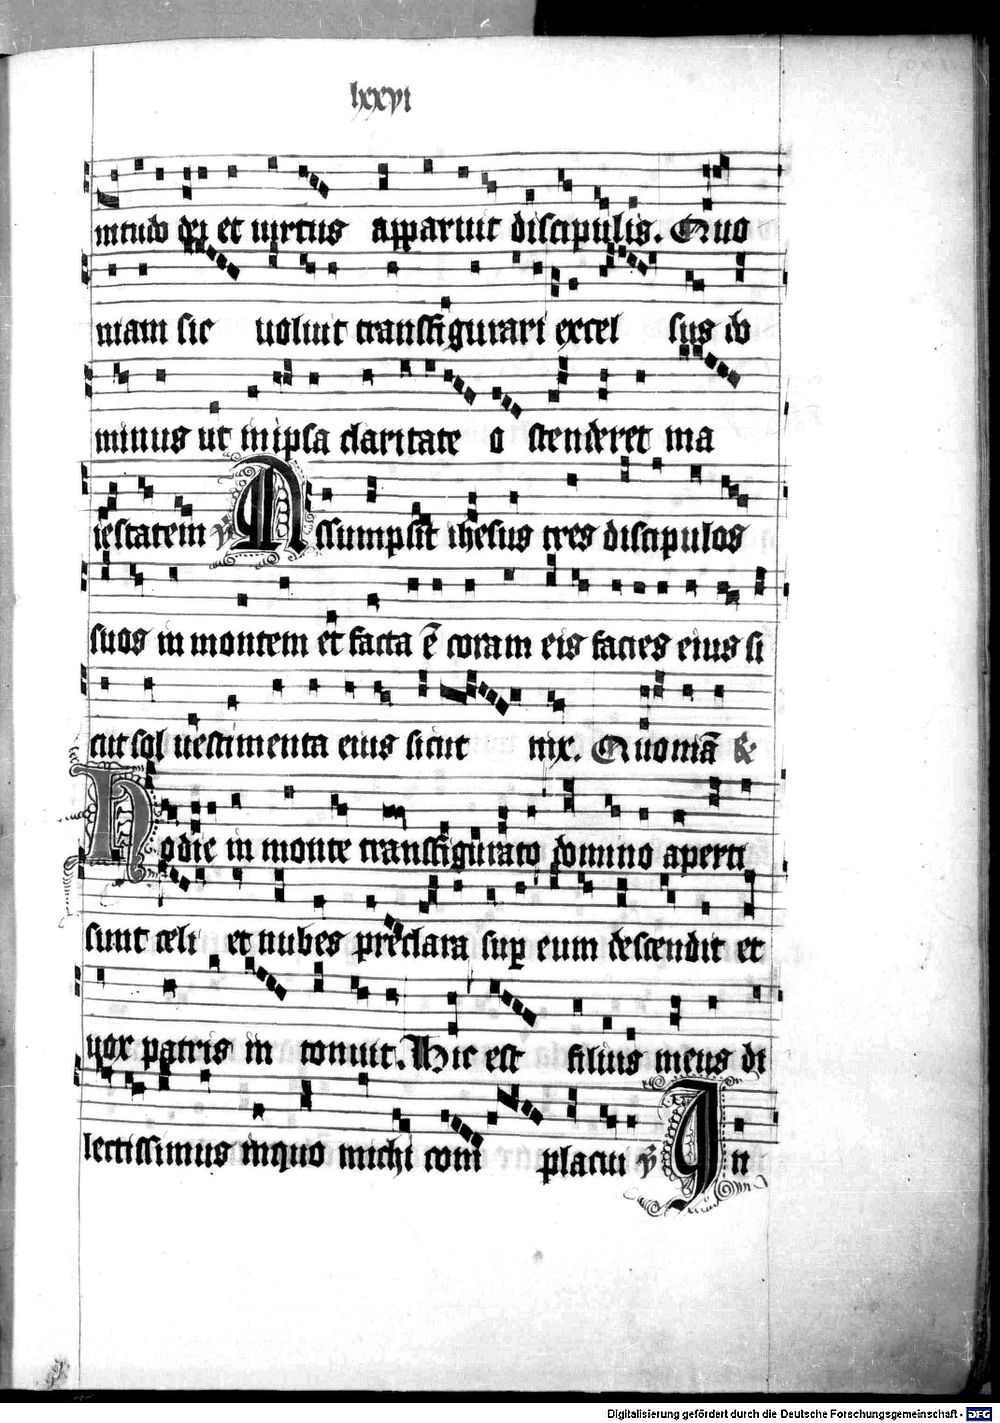 lxxvi
nitudo dei et uirtus apparuit discipulis. Quo
niam sic uoluit transfigurari excel sus do
minus ut in ipsa claritate o stenderet ma
iestatem ℣ Assumpsit ihesus tres discipulos
suos in montem et facta ē coram eis facies eius si
cut sol uestimenta eius sicut nix. Quoniā &
Hodie in monte transfigurato domino aperti
sunt celi et nubes preclara suꝑ eum descendit et
uox patris in tonuit. Hic est filius meus di
lectissimus inquo michi com placui ℣ In
Digitalisierung gefördert durch die Deutsche Forschungsgemeinschaft - DFG